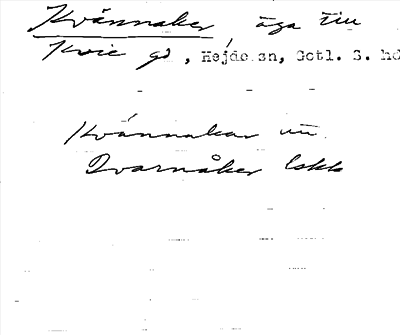 Kvännaker, äga till
Kvie gd, Hejde sn, Gotl. S. hd
Kvánnakar uu
Qvarnåker lskk